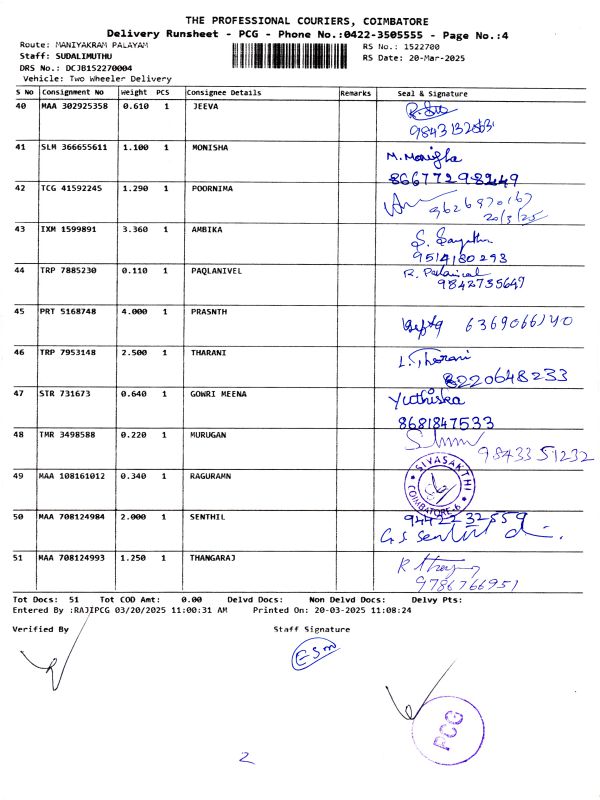 THE PROFESSIONAL COURIERS, COIMBATORE
Delivery Runsheet - PCG - Phone No.:0422-3505555 - Page No.:4
Route: MANIYAKRAM PALAYAM RS No.: 1522700
Staff: SUDALIMUTHU RS Date: 20-Mar-2025
DRS No.: DCJB152270004
Vehicle: Two Wheeler Delivery
S No Consignment No Weight PCS Consignee Details Remarks Seal & Signature
40 MAA 302925358 0.610 1 JEEVA
41 SLM 366655611 1.100 1 MONISHA M. Monisha
8667729
42 TCG 41592245 1.290 1 POORNIMA
9626970167
20/3/25
43 IXM 1599891 3.360 1 AMBIKA
9514180293
44 TRP 7885230 0.110 1 PAQLANIVEL R. Palanivel
9842735649
45 PRT 5168748 4.000 1 PRASNTH 6369066140
46 TRP 7953148 2.500 1 THARANI L. Tharani
8220648233
47 STR 731673 0.640 1 GOWRI MEENA Yuthiska
8681847533
48 TMR 3498588 0.220 1 MURUGAN
9843351232
49 MAA 108161012 0.340 1 RAGURAMN SIVASAKTHI COIMBATORE-6
50 MAA 708124984 2.000 1 SENTHIL 9442232559
G S Senthil
51 MAA 708124993 1.250 1 THANGARAJ
9786766951
Tot Docs: 51 Tot COD Amt: 0.00 Delvd Docs: Non Delvd Docs: Delvy Pts:
Entered By :RAJIPCG 03/20/2025 11:00:31 AM Printed On: 20-03-2025 11:08:24
Verified By Staff Signature
ESM
PCG
2